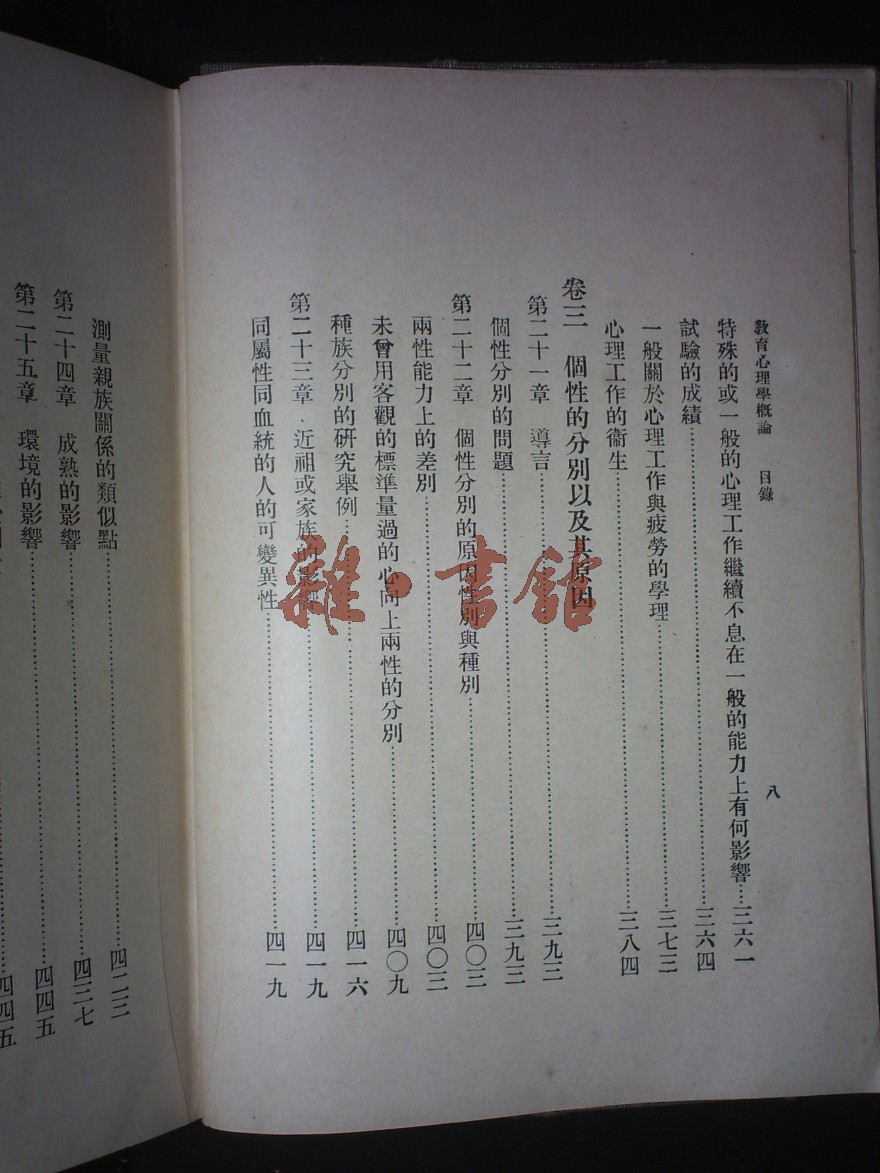 教育心理學概論　目錄　八
特殊的或一般的心理工作繼續不息在一般的能力上有何影響…三六一
試驗的成績…三六四
一般關於心理工作與疲勞的學理…三七三
心理工作的衞生…三八四
卷三　個性的分別以及其原因
第二十一章　導言…三九三
個性分別的問題…三九三
第二十二章　個性分別的原因性別與種別…四〇三
兩性能力上的差別…四〇三
未曾用客觀的標準量過的心向上兩性的分別…四〇九
種族分別的研究舉例…四一六
第二十三章　近祖或家族的影響…四一九
同屬性同血統的人的可變異性…四一九
測量親族關係的類似點…四二三
第二十四章　成熟的影響…四三七
第二十五章　環境的影響…四四五
四四五
雜·書館